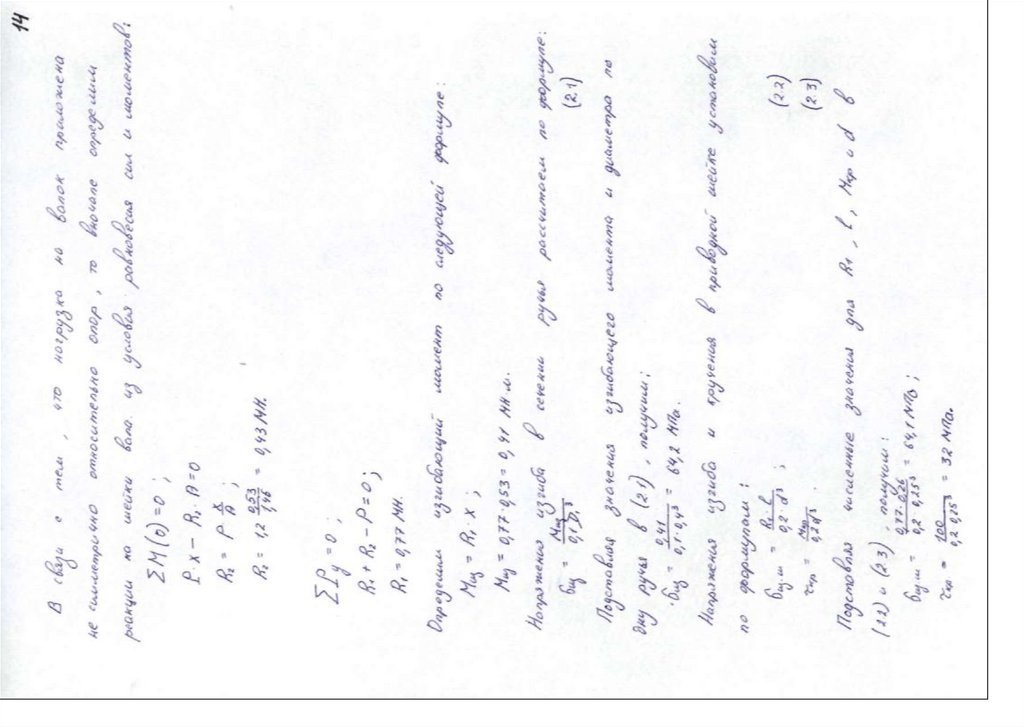 14
В связи с тем, что нагрузка на валок приложена
не симметрично относительно опор, то вначале определим
реакции на шейки вала из условия равновесия сил и моментов:
ΣM(0)=0;
P·x − R₂·A=0
R₂ = P·x/A;
R₂ = 1,2 0,53/1,46 = 0,43 МН.
ΣPy=0;
R₁ + R₂ − P=0;
R₁ = 0,77 МН.
Определим изгибающий момент по следующей формуле:
Mиз = R₁·x;
Mиз = 0,77·0,53 = 0,41 МН м.
Напряжения изгиба в сечении ручья рассчитаем по формуле:
биз = Mиз/0,1·D₁³ (2.1)
Подставляя значения изгибающего момента и диаметра по
дну ручья в (2.1), получим:
биз = 0,41/0,1·0,4³ = 64,2 МПа.
Напряжения изгиба и кручения в приводной шейке установим
по формулам:
биз.ш = R₁·l/0,2·d³; (2.2)
τкр = Mкр/0,2d³. (2.3)
Подставляя численные значения для R₁, l, Mкр и d в
(2.2) и (2.3), получим:
биз.ш = 0,77·0,26/0,2 0,25³ = 64,1 МПа;
τкр = 100/0,2 0,25³ = 32 МПа.